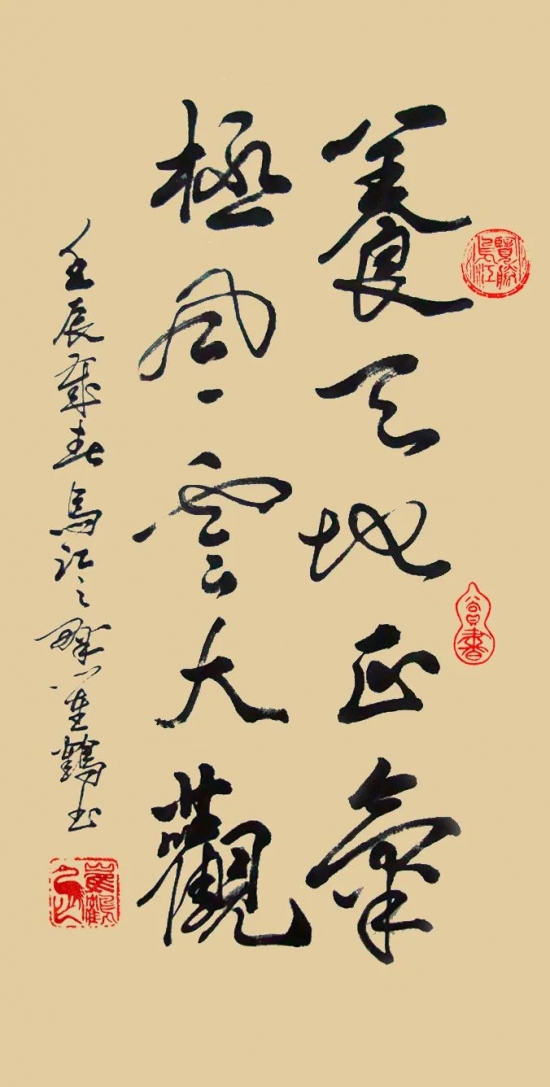 養天地正氣
極風雲大觀
壬辰春烏江之畔鶴書
烏江